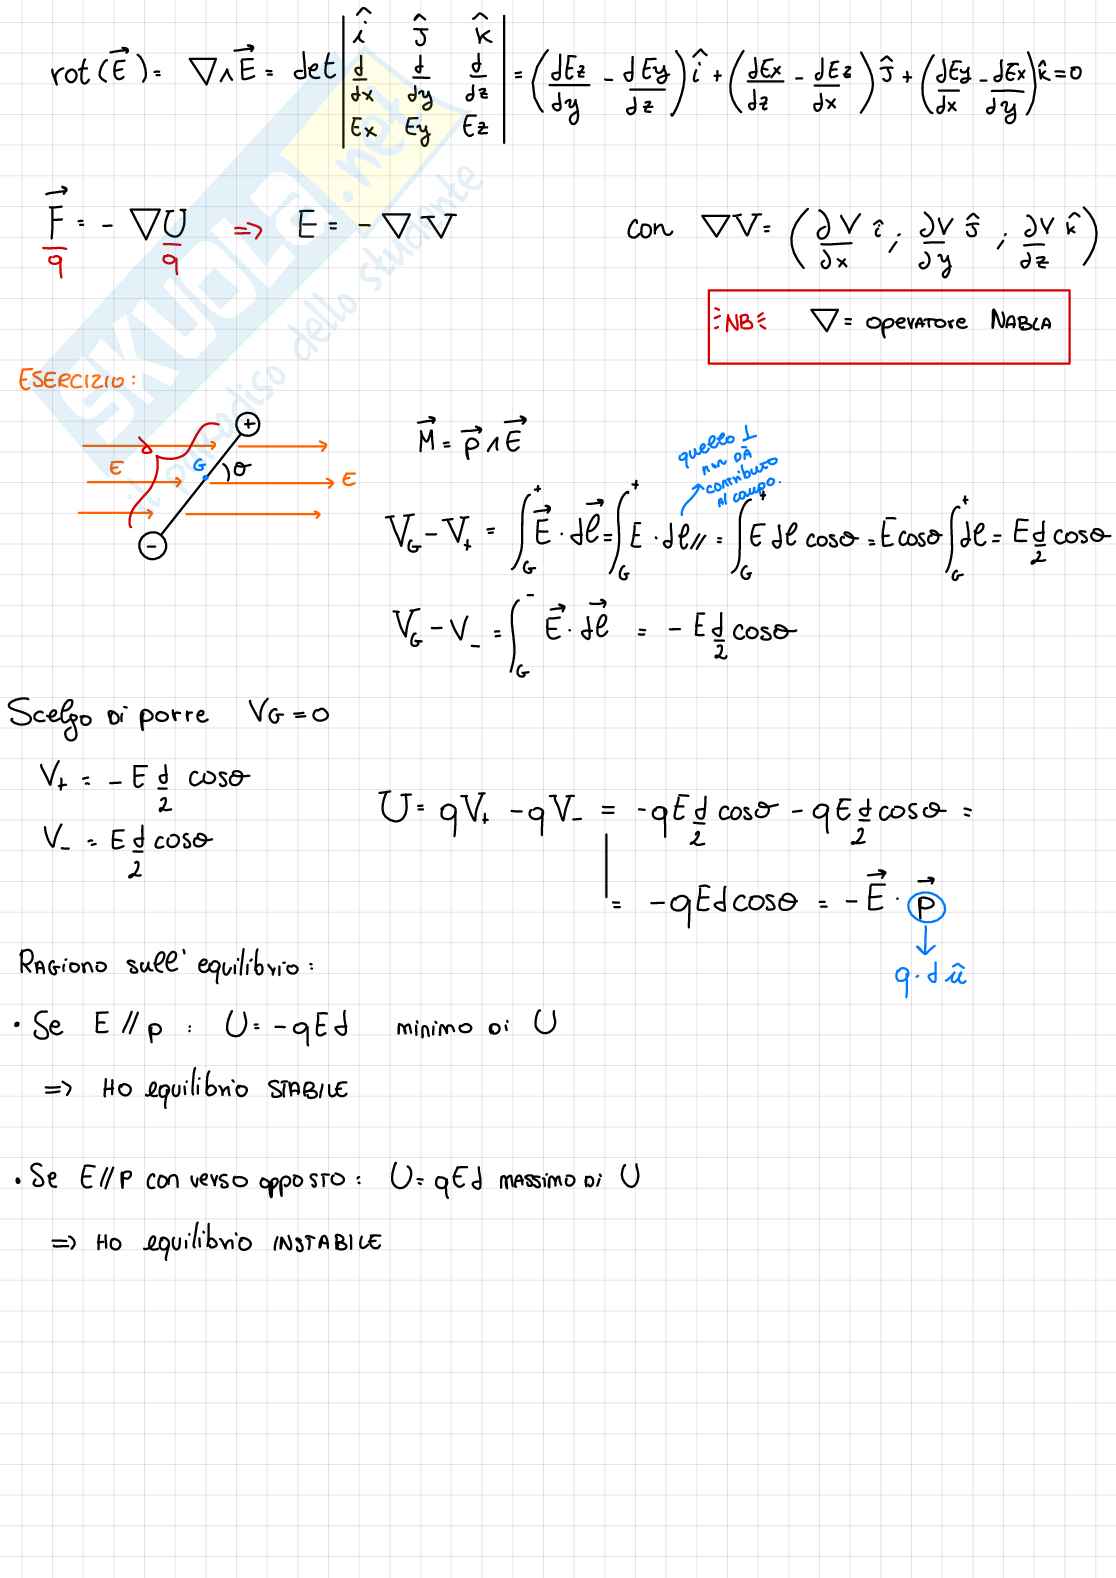 rot(E⃗) = ∇∧E⃗ = det | î ĵ k̂ ; d/dx d/dy d/dz ; Ex Ey Ez | = (dEz/dy - dEy/dz) î + (dEx/dz - dEz/dx) ĵ + (dEy/dx - dEx/dy) k̂ = 0
F⃗/q = - ∇U/q => E = - ∇V con ∇V = (∂V/∂x î ; ∂V/∂y ĵ ; ∂V/∂z k̂)
NB ∇ = operatore NABLA
ESERCIZIO:
+
E G θ E
-
M⃗ = p⃗ ∧ E⃗
quello ⊥ non dà contributo al campo.
V_G - V_+ = ∫_G^+ E⃗ · dl⃗ = ∫_G^+ E · dl// = ∫_G^+ E dl cosθ = E cosθ ∫_G^+ dl = E d/2 cosθ
V_G - V_- = ∫_G^- E⃗ · dl⃗ = - E d/2 cosθ
Scelgo di porre V_G = 0
V_+ = - E d/2 cosθ
V_- = E d/2 cosθ
U = qV_+ - qV_- = - qE d/2 cosθ - qE d/2 cosθ =
= - qEd cosθ = - E⃗ · p⃗
q · d û
Ragiono sull' equilibrio:
• Se E // p : U = - qEd minimo di U
=> Ho equilibrio STABILE
• Se E // p con verso opposto: U = qEd massimo di U
=> Ho equilibrio INSTABILE
SKUOLA.net
paradiso dello studente